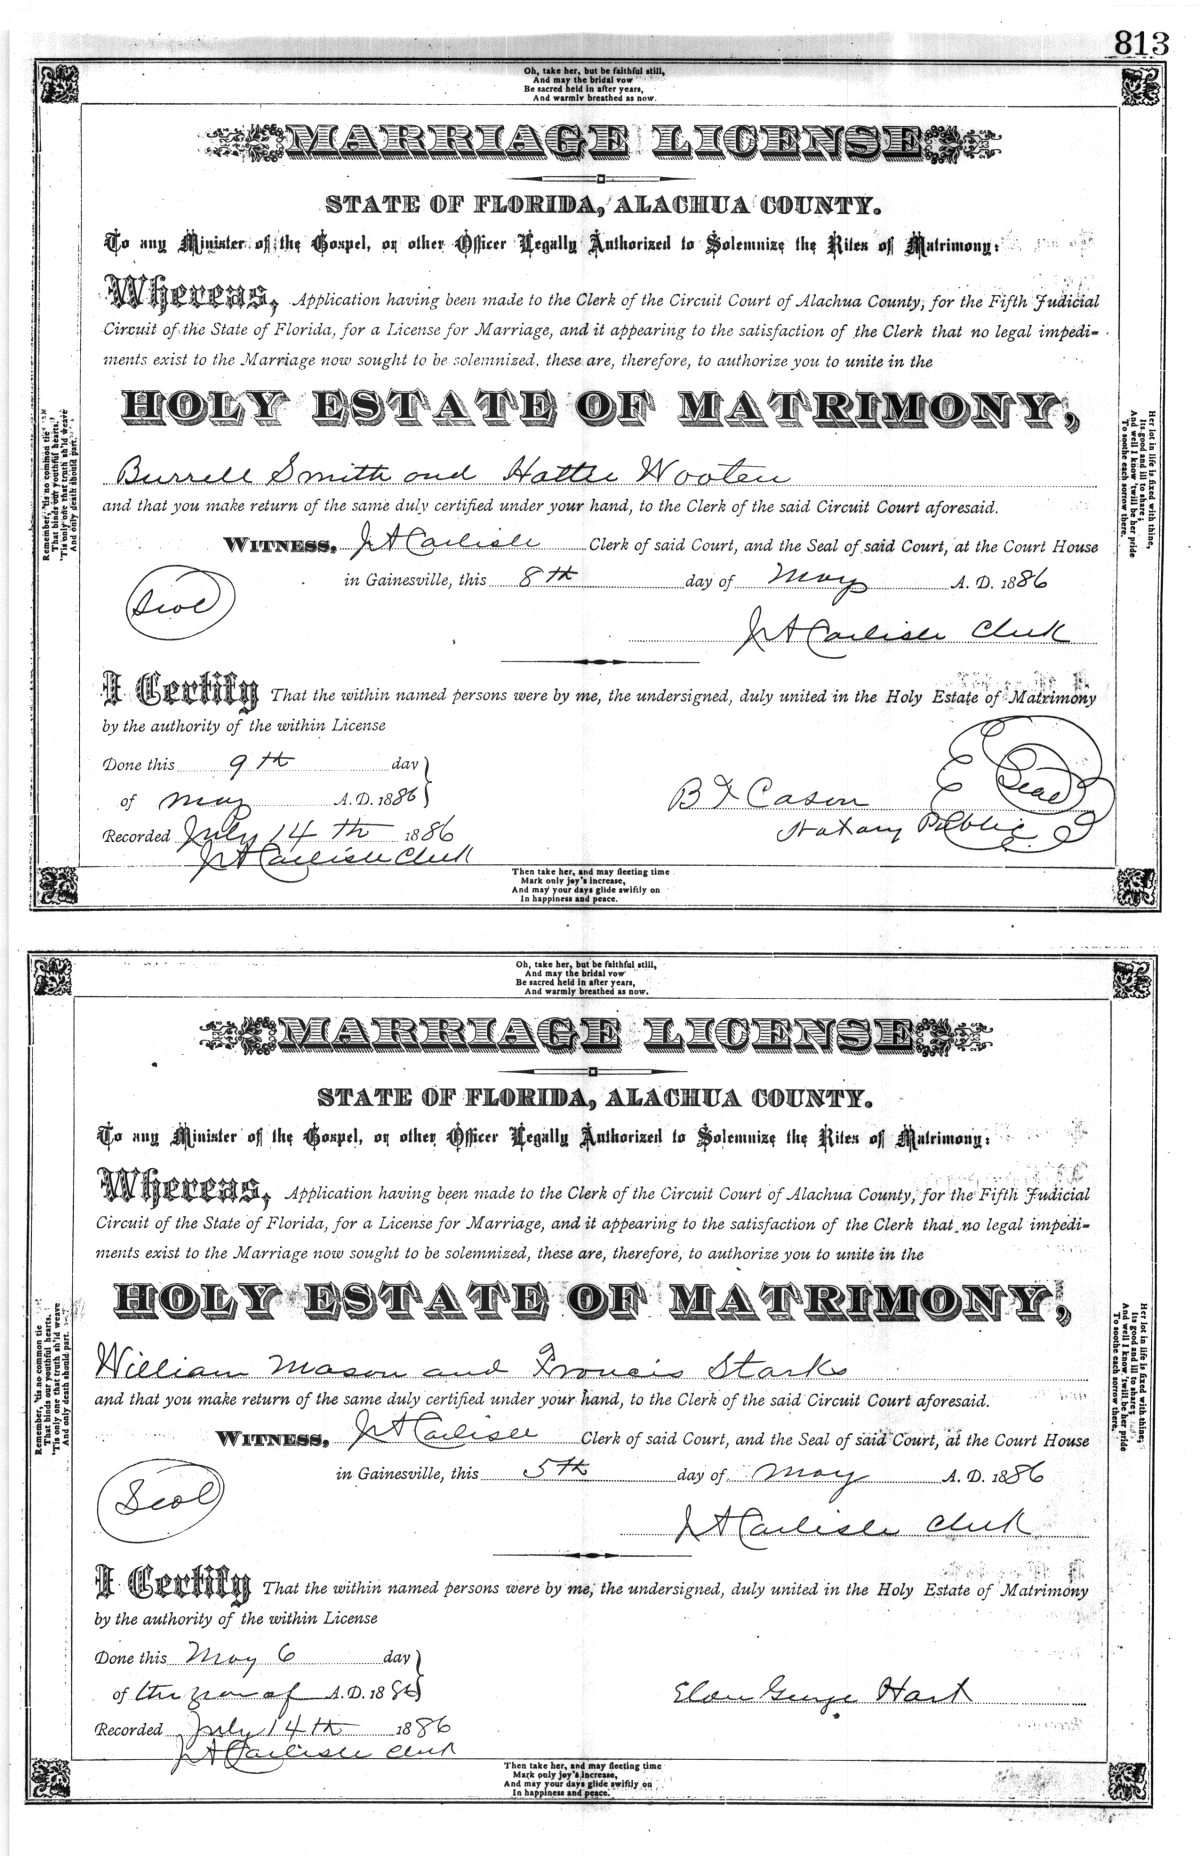 813
Oh, take her, but be faithful still,
And may the bridal vow
Be sacred held in after years,
And warmly breathed as now.
MARRIAGE LICENSE
STATE OF FLORIDA, ALACHUA COUNTY.
To any Minister of the Gospel, or other Officer Legally Authorized to Solemnize the Rites of Matrimony:
Whereas, Application having been made to the Clerk of the Circuit Court of Alachua County, for the Fifth Judicial
Circuit of the State of Florida, for a License for Marriage, and it appearing to the satisfaction of the Clerk that no legal impedi-
ments exist to the Marriage now sought to be solemnized, these are, therefore, to authorize you to unite in the
HOLY ESTATE OF MATRIMONY,
Burrell Smith and Hattie Wooten
and that you make return of the same duly certified under your hand, to the Clerk of the said Circuit Court aforesaid.
WITNESS, J A Carlisle Clerk of said Court, and the Seal of said Court, at the Court House
in Gainesville, this 8th day of May A. D. 1886
Seal
J A Carlisle Clerk
I Certify That the within named persons were by me, the undersigned, duly united in the Holy Estate of Matrimony
by the authority of the within License
Done this 9th day
of May A.D. 1886
B F Cason
Seal
Recorded July 14th 1886
Notary Public
J A Carlisle Clerk
Remember, 'tis no common tie
That binds our youthful hearts.
'Tis only one that truth sh'ld weave
And only death should part.
Her lot in life is fixed with thine,
Its good and ill to share;
And well I know 'twill be her pride
To soothe each sorrow there.
Then take her, and may fleeting time
Mark only joy's increase,
And may your days glide swiftly on
In happiness and peace.
Oh, take her, but be faithful still,
And may the bridal vow
Be sacred held in after years,
And warmly breathed as now.
MARRIAGE LICENSE
STATE OF FLORIDA, ALACHUA COUNTY.
To any Minister of the Gospel, or other Officer Legally Authorized to Solemnize the Rites of Matrimony:
Whereas, Application having been made to the Clerk of the Circuit Court of Alachua County, for the Fifth Judicial
Circuit of the State of Florida, for a License for Marriage, and it appearing to the satisfaction of the Clerk that no legal impedi-
ments exist to the Marriage now sought to be solemnized, these are, therefore, to authorize you to unite in the
HOLY ESTATE OF MATRIMONY,
William Mason and Francis Starks
and that you make return of the same duly certified under your hand, to the Clerk of the said Circuit Court aforesaid.
WITNESS, J A Carlisle Clerk of said Court, and the Seal of said Court, at the Court House
in Gainesville, this 5th day of May A. D. 1886
Seal
J A Carlisle Clerk
I Certify That the within named persons were by me, the undersigned, duly united in the Holy Estate of Matrimony
by the authority of the within License
Done this May 6 day
of the year of A.D. 1886
George Hart
Recorded July 14th 1886
J A Carlisle Clerk
Remember, 'tis no common tie
That binds our youthful hearts.
'Tis only one that truth sh'ld weave
And only death should part.
Her lot in life is fixed with thine,
Its good and ill to share;
And well I know 'twill be her pride
To soothe each sorrow there.
Then take her, and may fleeting time
Mark only joy's increase,
And may your days glide swiftly on
In happiness and peace.